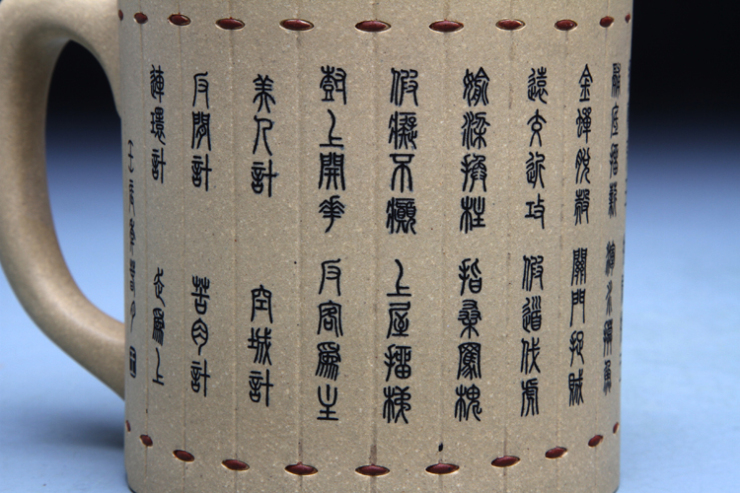 釜底抽薪 混水摸魚
金蟬脫殼 關門捉賊
遠交近攻 假道伐虢
偷梁換柱 指桑罵槐
假癡不癲 上屋抽梯
樹上開花 反客為主
美人計 空城計
反間計 苦肉計
連環計 走為上